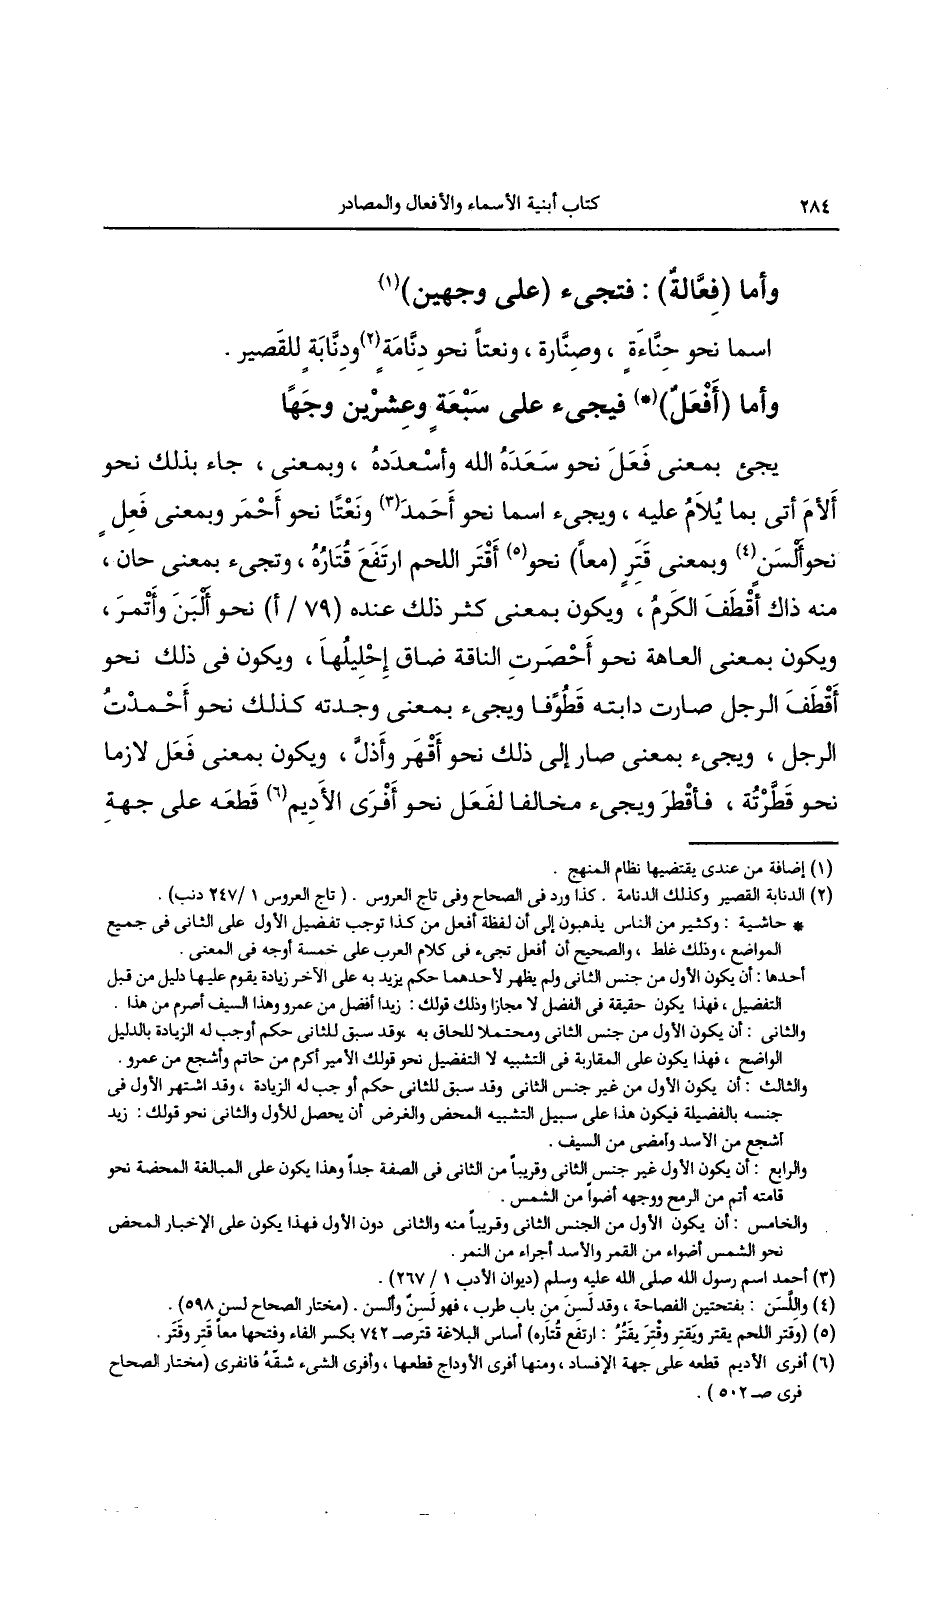 ٢٨٤ كتاب أبنية الأسماء والأفعال والمصادر
وأما (فِعَّالةٌ) : فتجىء (على وجهين)(١)
اسما نحو حِنَّاءَةٍ ، وصِنَّارة ، ونعتاً نحو دِنَّامَةٍ(٢) ودِنَّابَةٍ للقَصير .
وأما (أَفْعَلٌ)(*) فيجىء على سَبْعَةٍ وعِشرْين وجهًا
يجئ بمعنى فَعَلَ نحو سَعَدَهُ الله وأسْعدَدهُ ، وبمعنى ، جاء بذلك نحو
أَلأمَ أتى بما يُلاَمُ عليه ، ويجىء اسما نحو أَحَمدَ(٣) ونَعْتًا نحو أَحْمَر وبمعنى فَعِلٍ
نحوأَلْسَن(٤) وبمعنى قَتَرِ (معاً) نحو(٥) أَقْتَر اللحم ارتَفَعَ قُتَارُهُ ، وتجىء بمعنى حان ،
منه ذاك أَقْطَفَ الكَرمُ ، ويكون بمعنى كثر ذلك عنده (٧٩ / أ) نحو أَلْبَنَ وأَتْمرَ ،
ويكون بمعنى العاهة نحو أَحْصَرتِ الناقة ضاق إِحْلِيلُهاَ ، ويكون فى ذلك نحو
أَقْطَفَ الرجل صارت دابته قَطُوًفا ويجىء بمعنى وجدته كذلك نحو أَحْمدْتُ
الرجل ، ويجىء بمعنى صار إلى ذلك نحو أَقْهَر وأَذلَّ ، ويكون بمعنى فَعَل لازما
نحو قَطَّرْتُة ، فأقْطرَ ويجىء مخالفا لفَعَل نحو أَفْرَى الأديم(٦) قَطعَه على جهة
(١) إضافة من عندى يقتضيها نظام المنهج .
(٢) الدنابة القصير وكذلك الدنامة . كذا ورد فى الصحاح وفى تاج العروس . ( تاج العروس ١ /٢٤٧ دنب) .
* حاشية : وكثير من الناس يذهبون إلى أن لفظة أفعل من كذا توجب تفضيل الأول على الثانى فى جميع
المواضع ، وذلك غلط ، والصحيح أن أفعل تجىء فى كلام العرب على خمسة أوجه فى المعنى .
أحدها : أن يكون الأول من جنس الثانى ولم يظهر لأحدهما حكم يزيد به على الآخر زيادة يقوم عليها دليل من قبل
التفضيل ، فهذا يكون حقيقة فى الفضل لا مجازا وذلك قولك : زيدا أفضل من عمرو وهذا السيف أصرم من هذا .
والثانى : أن يكون الأول من جنس الثانى ومحتملا للحاق به ، وقد سبق للثانى حكم أوجب له الزيادة بالدليل
الواضح ، فهذا يكون على المقاربة فى التشبيه لا التفضيل نحو قولك الأمير أكرم من حاتم وأشجع من عمرو .
والثالث : أن يكون الأول من غير جنس الثانى وقد سبق للثانى حكم أو جب له الزيادة ، وقد اشتهر الأول فى
جنسه بالفضيلة فيكون هذا على سبيل التشبيه المحض والغرض أن يحصل للأول والثانى نحو قولك : زيد
أشجع من الأسد وأمضى من السيف .
والرابع : أن يكون الأول غير جنس الثانى وقريباً من الثانى فى الصفة جداً وهذا يكون على المبالغة المحضة نحو
قامته أتم من الرمح ووجهه أضوأ من الشمس .
والخامس : أن يكون الأول من الجنس الثانى وقريباً منه والثانى دون الأول فهذا يكون على الإخبار المحض
نحو الشمس أضواء من القمر والأسد أجراء من النمر .
(٣) أحمد اسم رسول الله صلى الله عليه وسلم (ديوان الأدب ١ / ٢٦٧) .
(٤) واللَّسَن : بفتحتين الفصاحة ، وقد لَسِنَ من باب طرب ، فهو لَسِنٌ وألسن . (مختار الصحاح لسن ٥٩٨) .
(٥) (وقتر اللحم يقتر ويَقتِر وقْتِرَ يقتُرُ : ارتفع قُتاره) أساس البلاغة قترصـ ٧٤٢ بكسر الفاء وفتحها معاً قَتِر وقَتَر .
(٦) أفرى الأديم قطعه على جهة الإفساد ، ومنها أفرى الأوداج قطعها ، وأفرى الشىء شقّهُ فانفرى (مختار الصحاح
فرى صـ ٥٠٢ ) .